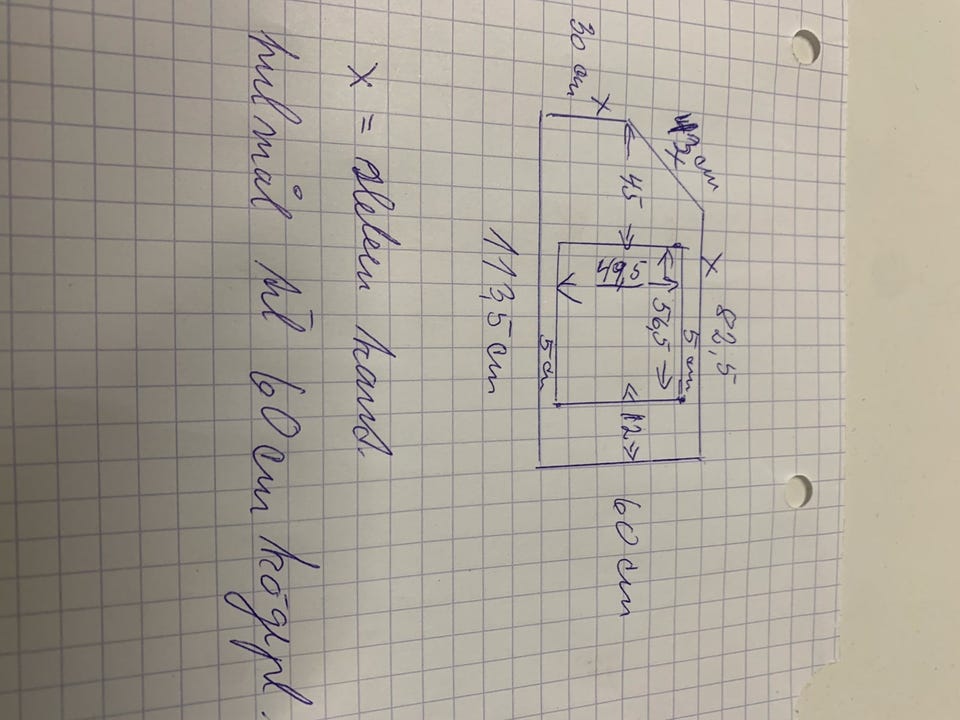 82,5
X
43 cm
X
5 cm
56,5
30 cm
X
45
49,5
12
60 cm
5 cm
113,5 cm
X = sleben kand.
hulmål til 60 cm kogpl.